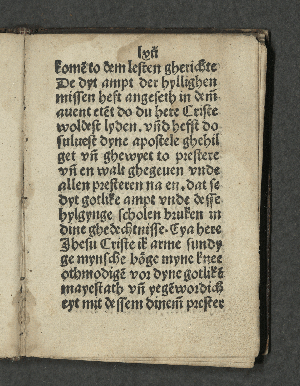 lvij
komē to dem lesten gherichte
De dyt ampt der hyllighen
missen hest angeseth in dem
auent etēt do du here Criste
woldest lyden. vñd hefst do
suluest dyne apostele ghehil
get vñ ghewyet to prestere
vñ en walt ghegeuen vnde
allen presteren na en, dat se
dyt gotlike ampt vnde desse
hylgynge scholen bruken in
dine ghedechtnisse. Eya here
Jhesu Criste ik arme sundy
ge mynsche böge myne knee
othmodigē vor dyne gotlikē
mayestath vñ yegēwordich
eyt mit dessem dinem prester